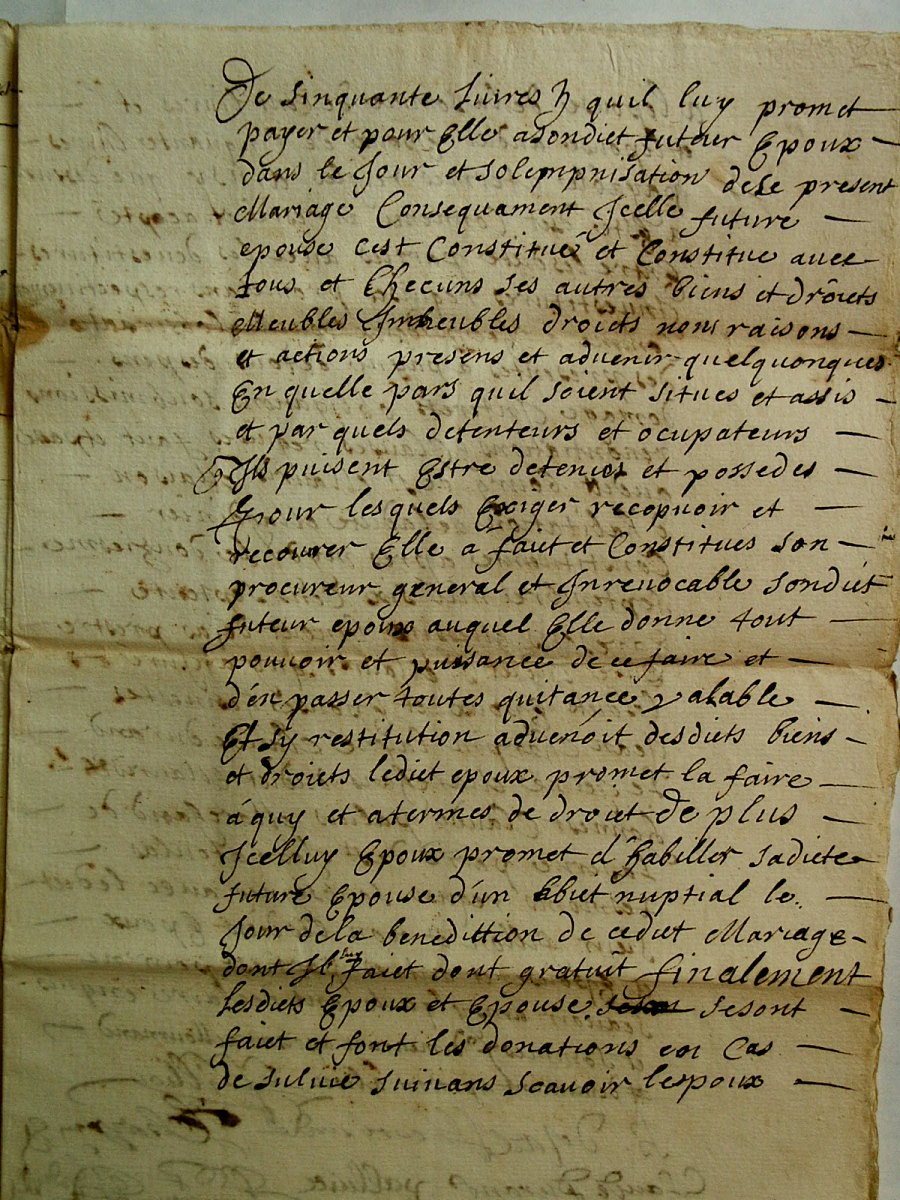 De sinquante livres quil luy promet
payer et pour Elle asondict futeur Epoux
dans le Jour et solempnisation de Le present
Mariage Consequament Jcelle future
epouse cest Constitué et Constitue avec
tous et Checuns ses autres biens et droicts
Meubles Jmheubles droicts noms raisons
et actions presens et advenir quelquonques
En quelle pars quil soient situes et assis
et par quels detenteurs et ocupateurs
Ils puisent Estre detenus et possedes
pour lesquels Exiger recepvoir et
recouvrer Elle a faict et Constitues son
procureur general et Jnrevocable sondict
futeur epoux auquel Elle donne tout
pouvoir et puissance de ce faire et
d'en passer toutes quitance valable
Et sy restitution advenoit desdicts biens
et droicts ledict epoux promet la faire
á quy et a termes de droict de plus
Jcelluy Epoux promet d'habiller sadicte
future Epouse d'un hbiet nuptial le
Jour de la benedittion de cedict Mariage
dont Jl luy faict dont gratuit finalement
Lesdicts Epoux et Epouse se sont
faict et font les donations en Cas
de sulvie suivans scavoir lespoux